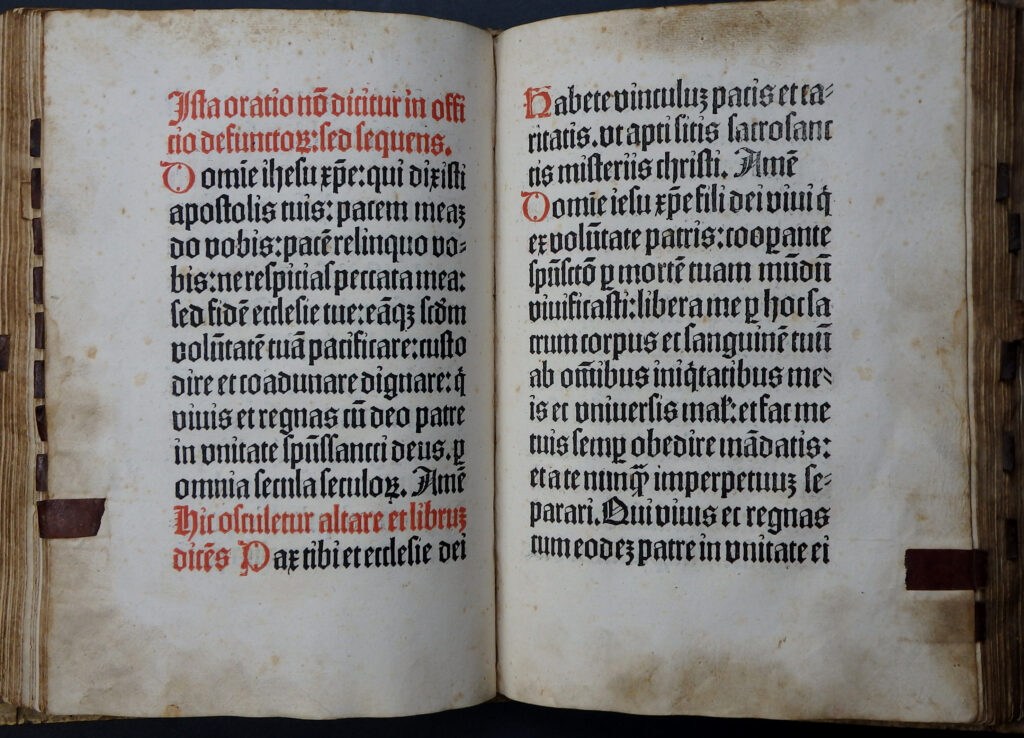 Ista oratio nō dicitur in offi
cio defunctoꝝ: sed sequens.
Domīe ihesu xp̄e: qui dixisti
apostolis tuis: pacem meaꝫ
do vobis: pacē relinquo vo⸗
bis: ne respicias peccata mea:
sed fidē ecclesie tue: eāqꝫ scd̄m
volūtatē tuā pacificare: custo
dire et coadunare dignare: q̇
viuis et regnas cū deo patre
in vnitate sp̄ūssancti deus. ꝑ
omnia secula seculoꝝ. Amē
Hic osculetur altare et libruꝫ
dicēs Pax tibi et ecclesie dei
Habete vinculuꝫ pacis et ca⸗
ritatis. vt apti sitis sacrosanc
tis misteriis christi. Amē
Domīe iesu xp̄e fili dei viui q̇
ex volūtate patris: cooꝑante
sp̄ūsctō ꝑ mortē tuam mūdū
viuificasti: libera me ꝑ hoc sa
crum corpus et sanguinē tuū
ab om̄ibus iniq̇tatibus me⸗
is et vniuersis mal̓: et fac me
tuis semꝑ obedire mādatis:
et a te nunq̄ꝫ imperpetuuꝫ se⸗
parari. Qui viuis et regnas
cum eodeꝫ patre in vnitate ei